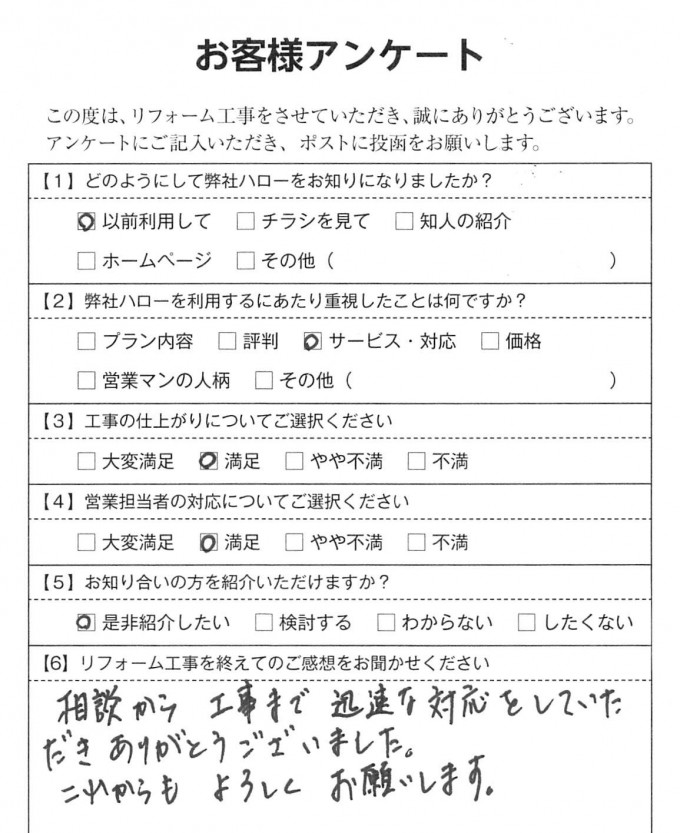 お客様アンケート
この度は、リフォーム工事をさせていただき、誠にありがとうございます。
アンケートにご記入いただき、ポストに投函をお願いします。
【1】どのようにして弊社ハローをお知りになりましたか？
☑以前利用して □チラシを見て □知人の紹介
□ホームページ □その他（ ）
【2】弊社ハローを利用するにあたり重視したことは何ですか？
□プラン内容 □評判 ☑サービス・対応 □価格
□営業マンの人柄 □その他（ ）
【3】工事の仕上がりについてご選択ください
□大変満足 ☑満足 □やや不満 □不満
【4】営業担当者の対応についてご選択ください
□大変満足 ☑満足 □やや不満 □不満
【5】お知り合いの方を紹介いただけますか？
☑是非紹介したい □検討する □わからない □したくない
【6】リフォーム工事を終えてのご感想をお聞かせください
相談から 工事まで 迅速な対応をしていた
だきありがとうございました。
これからも よろしく お願いします。